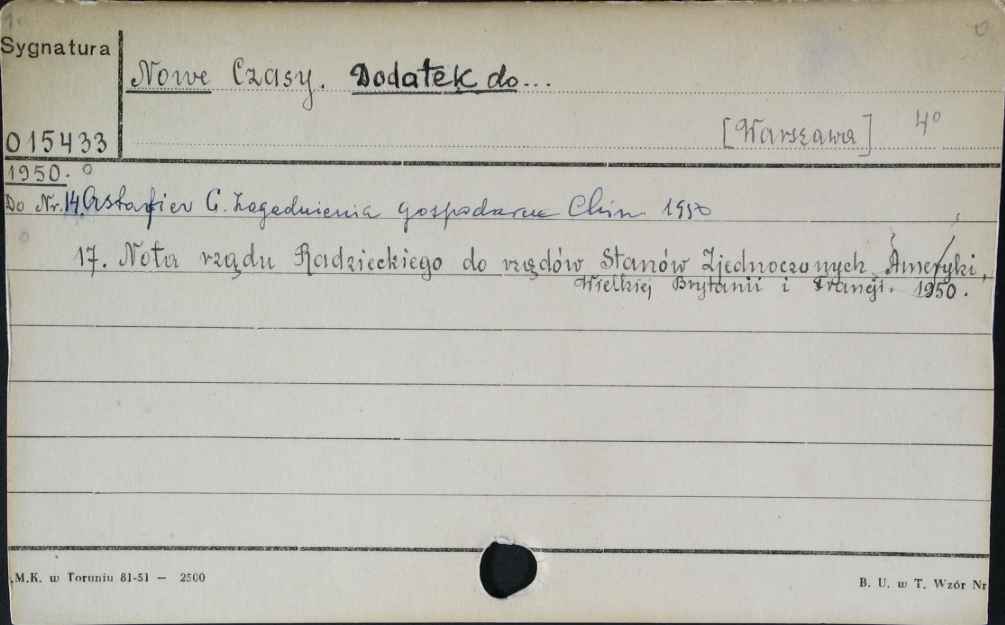 Sygnatura
Nowe Czasy. Dodatek do...
015433
[Warszawa] 4°
1950.
Do Nr. 14. Astafiev G. Zagadnienia gospodarcze Chin 1950
17. Nota rządu Radzieckiego do rządów Stanów Zjednoczonych Ameryki,
Wielkiej Brytanii i Francji. 1950.
.M.K. w Toruniu 81-51 — 2500
B. U. w T. Wzór Nr